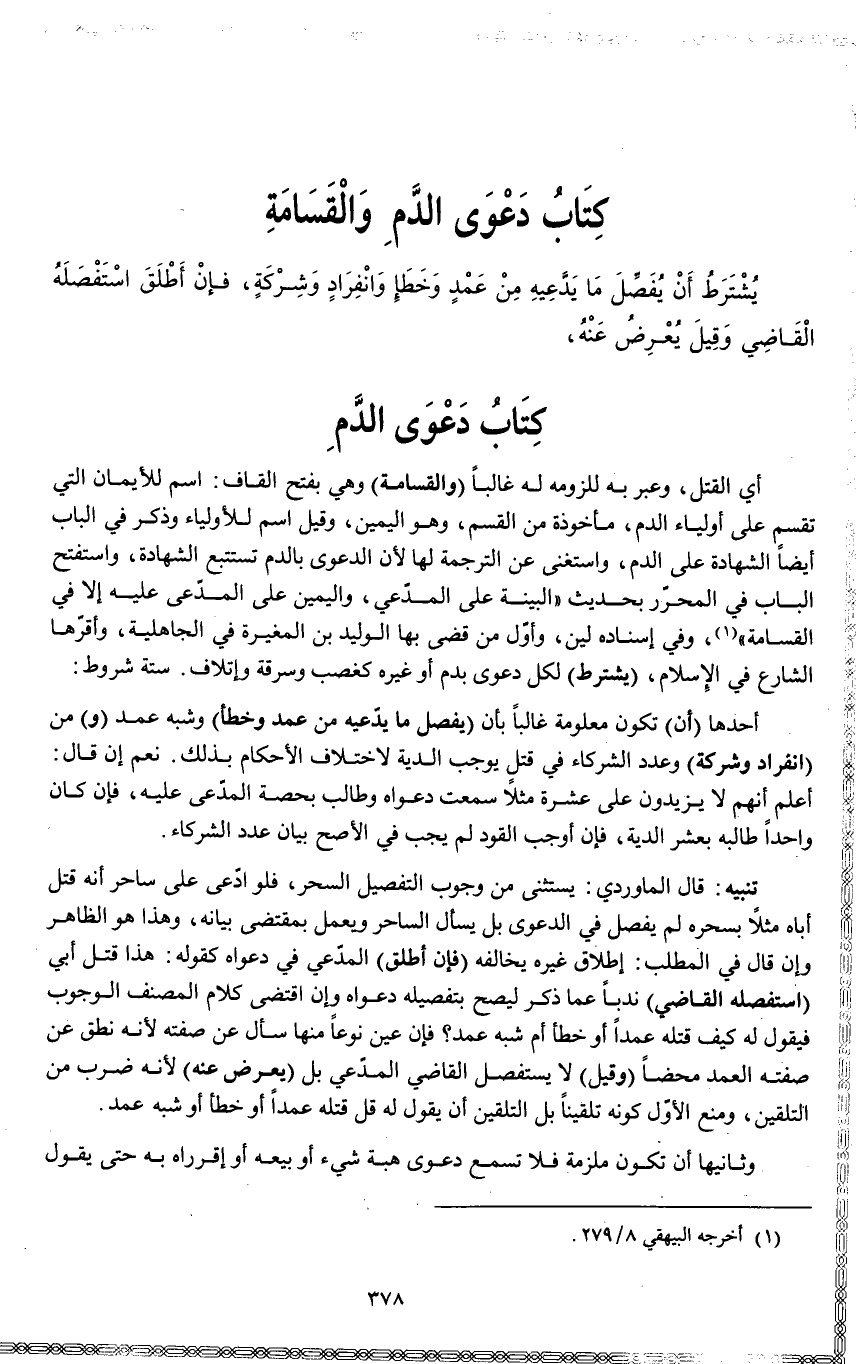 كِتَابُ دَعْوَى الدَّمِ وَالْقَسَامَةِ
يُشْتَرَطُ أَنْ يُفَصِّلَ مَا يَدَّعِيهِ مِنْ عَمْدٍ وَخَطَإٍ وَانْفِرَادٍ وَشِرْكَةٍ، فَإِنْ أَطْلَقَ اسْتَفْصَلَهُ
الْقَاضِي وَقِيلَ يُعْرِضُ عَنْهُ،
كِتَابُ دَعْوَى الدَّمِ
أي القتل، وعبر به للزومه له غالباً (والقسامة) وهي بفتح القاف: اسم للأيمان التي
تقسم على أولياء الدم، مأخوذة من القسم، وهو اليمين، وقيل اسم للأولياء وذكر في الباب
أيضاً الشهادة على الدم، واستغنى عن الترجمة لها لأن الدعوى بالدم تستتبع الشهادة، واستفتح
الباب في المحرّر بحديث «البينة على المدّعي، واليمين على المدّعى عليه إلا في
القسامة»(١)، وفي إسناده لين، وأوّل من قضى بها الوليد بن المغيرة في الجاهلية، وأقرّها
الشارع في الإسلام، (يشترط) لكل دعوى بدم أو غيره كغصب وسرقة وإتلاف. ستة شروط:
أحدها (أن) تكون معلومة غالباً بأن (يفصل ما يدّعيه من عمد وخطأ) وشبه عمد (و) من
(انفراد وشركة) وعدد الشركاء في قتل يوجب الدية لاختلاف الأحكام بذلك. نعم إن قال:
أعلم أنهم لا يزيدون على عشرة مثلاً سمعت دعواه وطالب بحصة المدّعى عليه، فإن كان
واحداً طالبه بعشر الدية، فإن أوجب القود لم يجب في الأصح بيان عدد الشركاء.
تنبيه: قال الماوردي: يستثنى من وجوب التفصيل السحر، فلو ادّعى على ساحر أنه قتل
أباه مثلاً بسحره لم يفصل في الدعوى بل يسأل الساحر ويعمل بمقتضى بيانه، وهذا هو الظاهر
وإن قال في المطلب: إطلاق غيره يخالفه (فإن أطلق) المدّعي في دعواه كقوله: هذا قتل أبي
(استفصله القاضي) ندباً عما ذكر ليصح بتفصيله دعواه وإن اقتضى كلام المصنف الوجوب
فيقول له كيف قتله عمداً أو خطأ أم شبه عمد؟ فإن عين نوعاً منها سأل عن صفته لأنه نطق عن
صفته العمد محضاً (وقيل) لا يستفصل القاضي المدّعي بل (يعرض عنه) لأنه ضرب من
التلقين، ومنع الأوّل كونه تلقيناً بل التلقين أن يقول له قل قتله عمداً أو خطأ أو شبه عمد.
وثانيها أن تكون ملزمة فلا تسمع دعوى هبة شيء أو بيعه أو إقرراه به حتى يقول
(١) أخرجه البيهقي ٢٧٩/٨.
٣٧٨